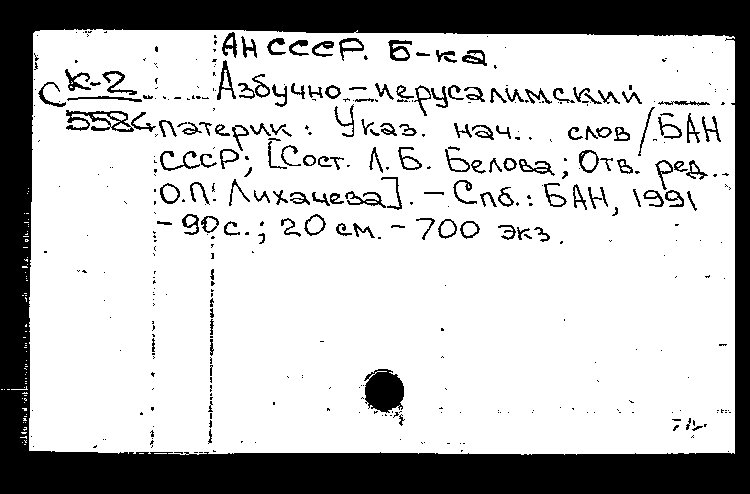 АН СССР. Б-ка.
С К-2
5584
Азбучно-иерусалимский
патерик: Указ. нач.. слов / БАН
СССР; [Сост. Л.Б. Белова; Отв. ред..
О.П. Лихачева]. – Спб.: БАН, 1991
– 90 с.; 20 см. – 700 экз.